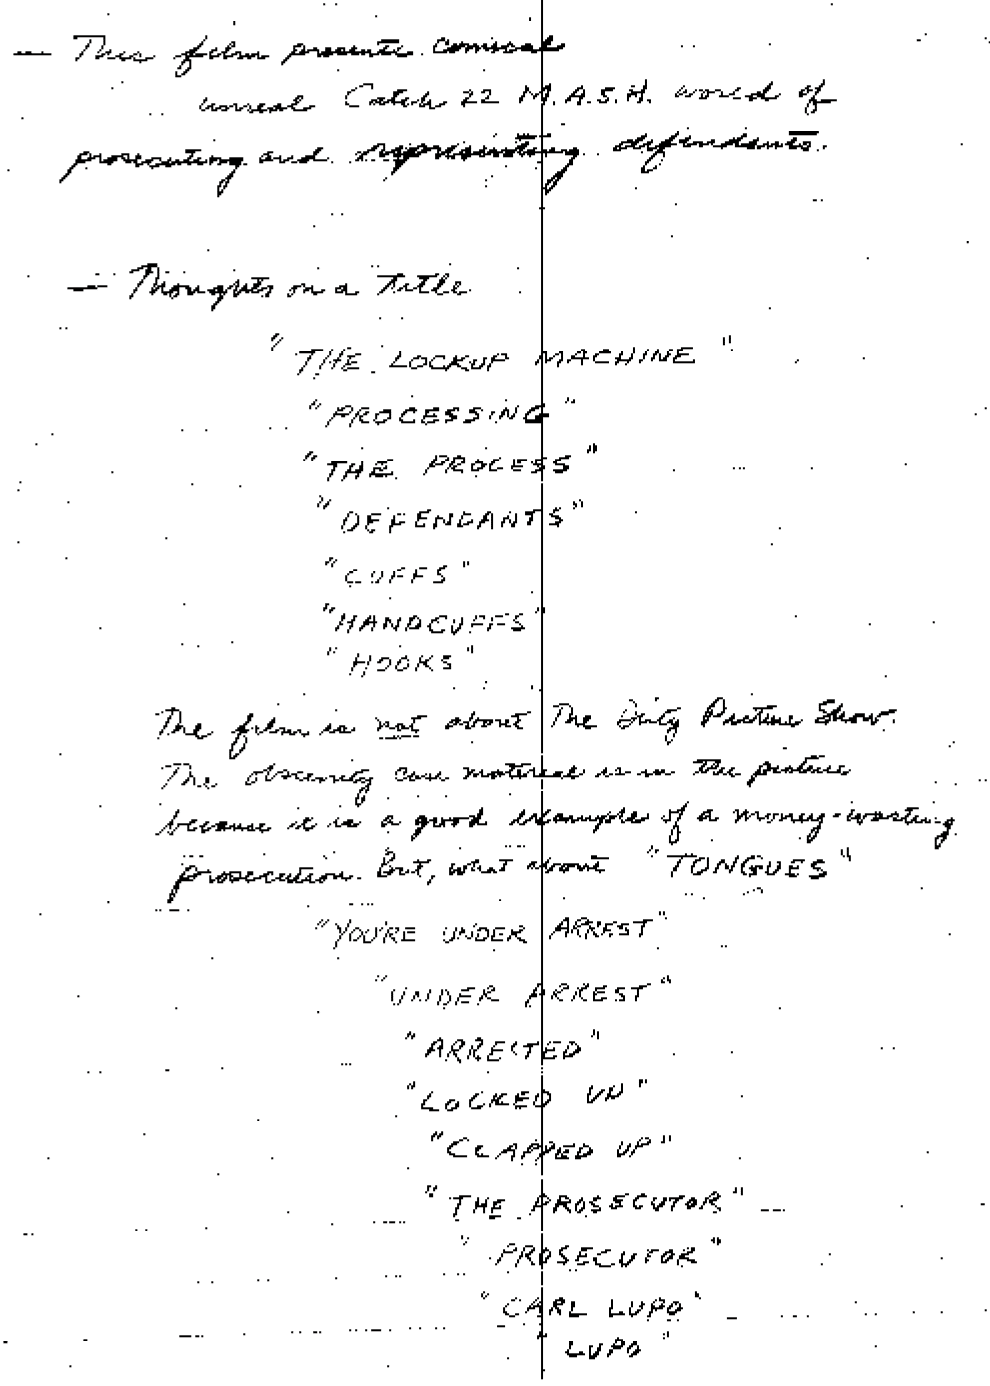 — This film presents comical
unreal Catch 22 M.A.S.H. world of
prosecuting and representing defendants.
— Thoughts on a Title
"THE LOCKUP MACHINE"
"PROCESSING"
"THE PROCESS"
"DEFENDANTS"
"CUFFS"
"HANDCUFFS"
"HOOKS"
The film is not about The Dirty Picture Show.
The obscenity case material is in the picture
because it is a good example of a money-wasting
prosecution. But, what about "TONGUES"
"YOU'RE UNDER ARREST"
"UNDER ARREST"
"ARRESTED"
"LOCKED UP"
"CLAPPED UP"
"THE PROSECUTOR"
"PROSECUTOR"
"CARL LUPO"
"LUPO"